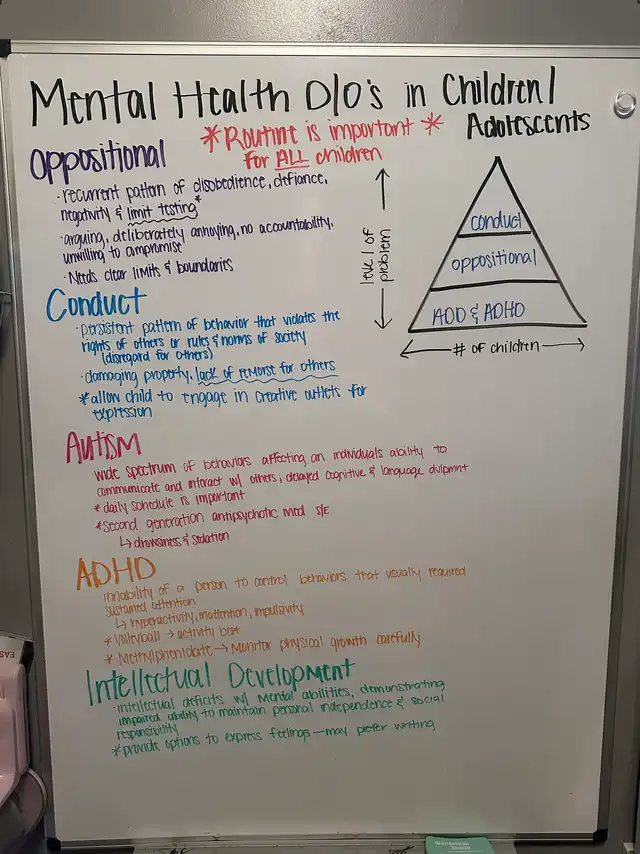 Mental Health D/O's in Children/
Adolescents
*Routine is important *
for ALL children
Oppositional
· recurrent pattern of disobedience, defiance,
negativity & limit testing*
· arguing, deliberately annoying, no accountability,
unwilling to compromise
· Needs clear limits & boundaries
level of
problem
conduct
oppositional
ADD & ADHD
# of children
Conduct
· persistent pattern of behavior that violates the
rights of others or rules & norms of society
(disregard for others)
· damaging property, lack of remorse for others
* allow child to engage in creative outlets for
expression
Autism
wide spectrum of behaviors affecting an individuals ability to
communicate and interact w/ others, delayed cognitive & language dvlpmnt
* daily schedule is important
* Second generation antipsychotic med S/E
↳ drowsiness & sedation
ADHD
innability of a person to control behaviors that usually required
sustained attention
↳ hyperactivity, inattention, impulsivity
* Volleyball → activity best
* Methylphenidate → Monitor physical growth carefully
Intellectual Development
· intellectual deficits w/ mental abilities, demonstrating
impaired ability to maintain personal independence & social
responsibility
* provide options to express feelings — may prefer writing